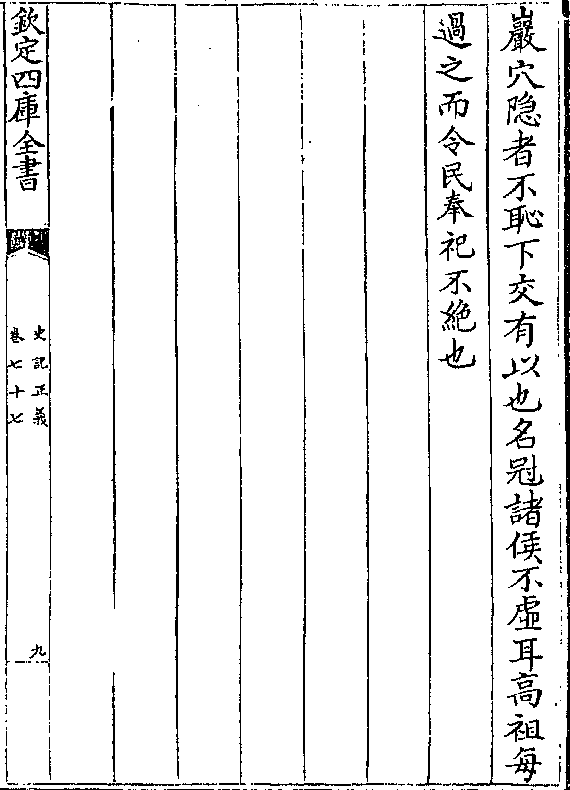 巖穴隐者不恥下交有以也名冠諸侯不虛耳高祖每
過之而令民奉祀不絶也
欽定四庫全書
史記正義
卷七十七
九